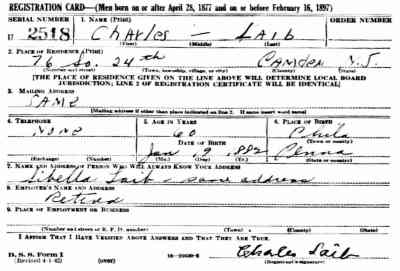 REGISTRATION CARD—(Men born on or after April 28, 1877 and on or before February 16, 1897)
SERIAL NUMBER 1. NAME (Print) ORDER NUMBER
U 2518 CHARLES - LAIB
(First) (Middle) (Last)
2. PLACE OF RESIDENCE (Print)
76 So. 24th CAMDEN N.J.
(Number and street) (Town, township, village, or city) (County) (State)
[THE PLACE OF RESIDENCE GIVEN ON THE LINE ABOVE WILL DETERMINE LOCAL BOARD
JURISDICTION; LINE 2 OF REGISTRATION CERTIFICATE WILL BE IDENTICAL]
3. MAILING ADDRESS
SAME
[Mailing address if other than place indicated on line 2. If same insert word same]
4. TELEPHONE 5. AGE IN YEARS 6. PLACE OF BIRTH
NONE 60 Phila
DATE OF BIRTH (Town or county)
Jan 9 1882 Penna
(Exchange) (Number) (Mo.) (Day) (Yr.) (State or country)
7. NAME AND ADDRESS OF PERSON WHO WILL ALWAYS KNOW YOUR ADDRESS
Laib - same address
8. EMPLOYER'S NAME AND ADDRESS
Retired
9. PLACE OF EMPLOYMENT OR BUSINESS
(Number and street or R. F. D. number) (Town) (County) (State)
I AFFIRM THAT I HAVE VERIFIED ABOVE ANSWERS AND THAT THEY ARE TRUE.
D. S. S. Form 1 Charles Laib
(Revised 4-1-42) (over) (Registrant's signature)